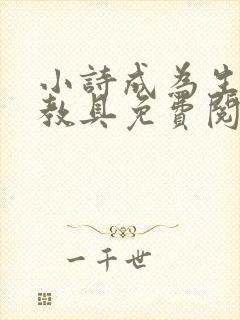 小詩成為生
教具免費閱
一千世